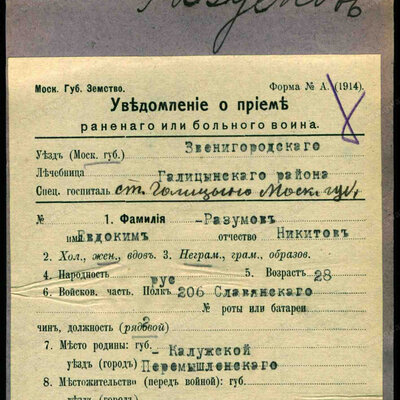 Моск. Губ. Земство. Форма № А. (1914).
Увѣдомленіе о пріемѣ
раненаго или больного воина.
Уѣздъ (Моск. губ.) Звенигородскаго
Лѣчебница Галицынскаго района
Спец. госпиталь ст. Голицыно Моск. губ.
№ 1. Фамилія -Разумовъ
имя Евдокимъ отчество Никитовъ
2. Хол., жен., вдовъ. 3. Неграм., грам., образов.
4. Народность рус 5. Возрастъ 28
6. Войсков. часть. Полкъ 206 Славянскаго
№ роты или батареи
чинъ, должность (рядовой)
7. Мѣсто родины: губ. - Калужской
уѣздъ (городъ) Перемышленскаго
8. Мѣстожительство (передъ войной): губ.
уѣздъ (городъ)